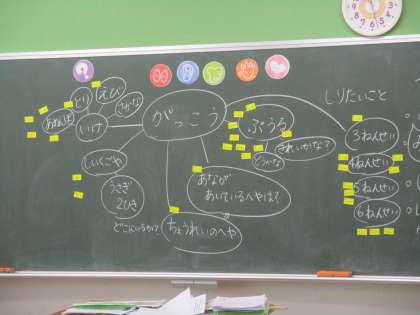 しりたいこと
がっこう
えび
とり
さかな
いけ
あめんぼ
ぷうる
きれいかな?
どうかな
3ねんせい
4ねんせい
5ねんせい
6ねんせい
いくごや
うさぎ
2ひき
どこにいるか?
あなが
あいているへやは?
ちょうれいのへや